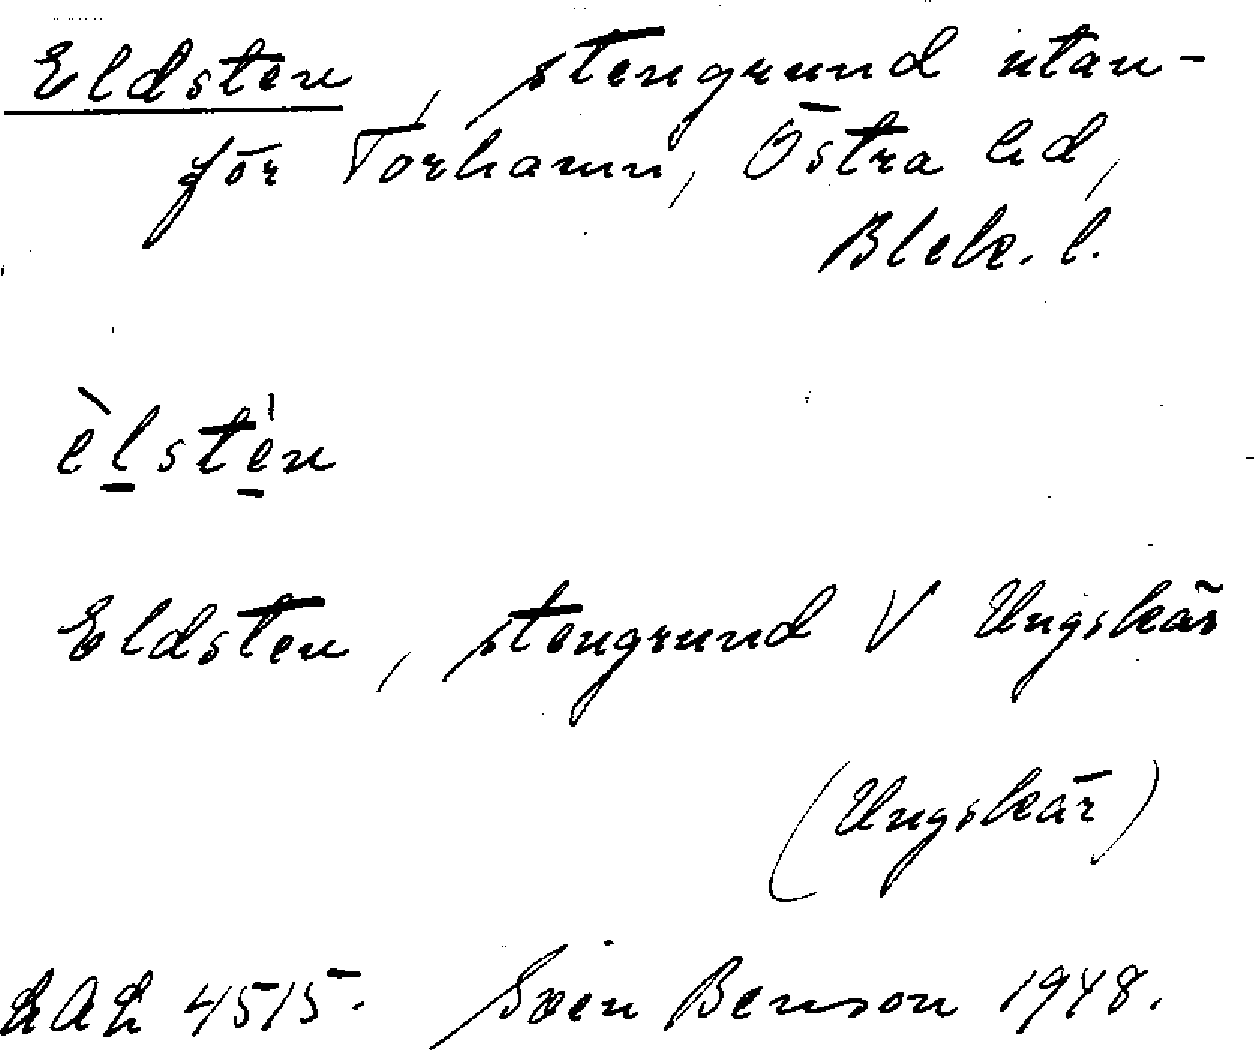 Eldsten, stengrund utan-
för Torhamn, Östra hd,
Blek. l.
èlstén
Eldsten, stengrund V Ungskär
(Ungskär)
LAL 4515. Sven Benson 1948.